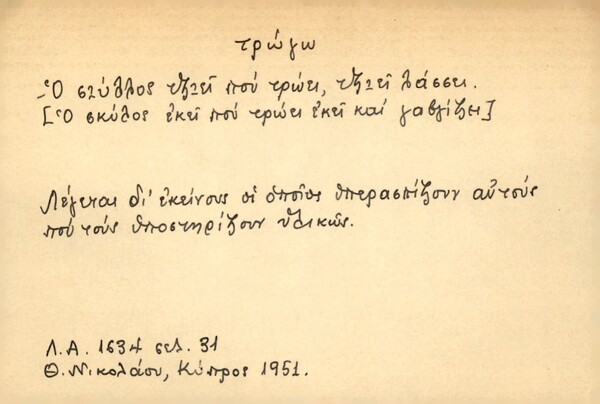 τρώγω
-Ὁ σιύλλος τζιεῖ πού τρώει, τζιεῖ λάσσει.
[Ὁ σκύλος ἐκεῖ πού τρώει ἐκεῖ καί γαβγίζει]
Λέγεται δι' ἐκείνους οἱ ὁποῖοι ὑπερασπίζουν αὐτούς
πού τούς ὑποστηρίζουν ὑλικῶς.
Λ.Α. 1634 σελ. 31
Θ. Νικολάου, Κύπρος 1951.